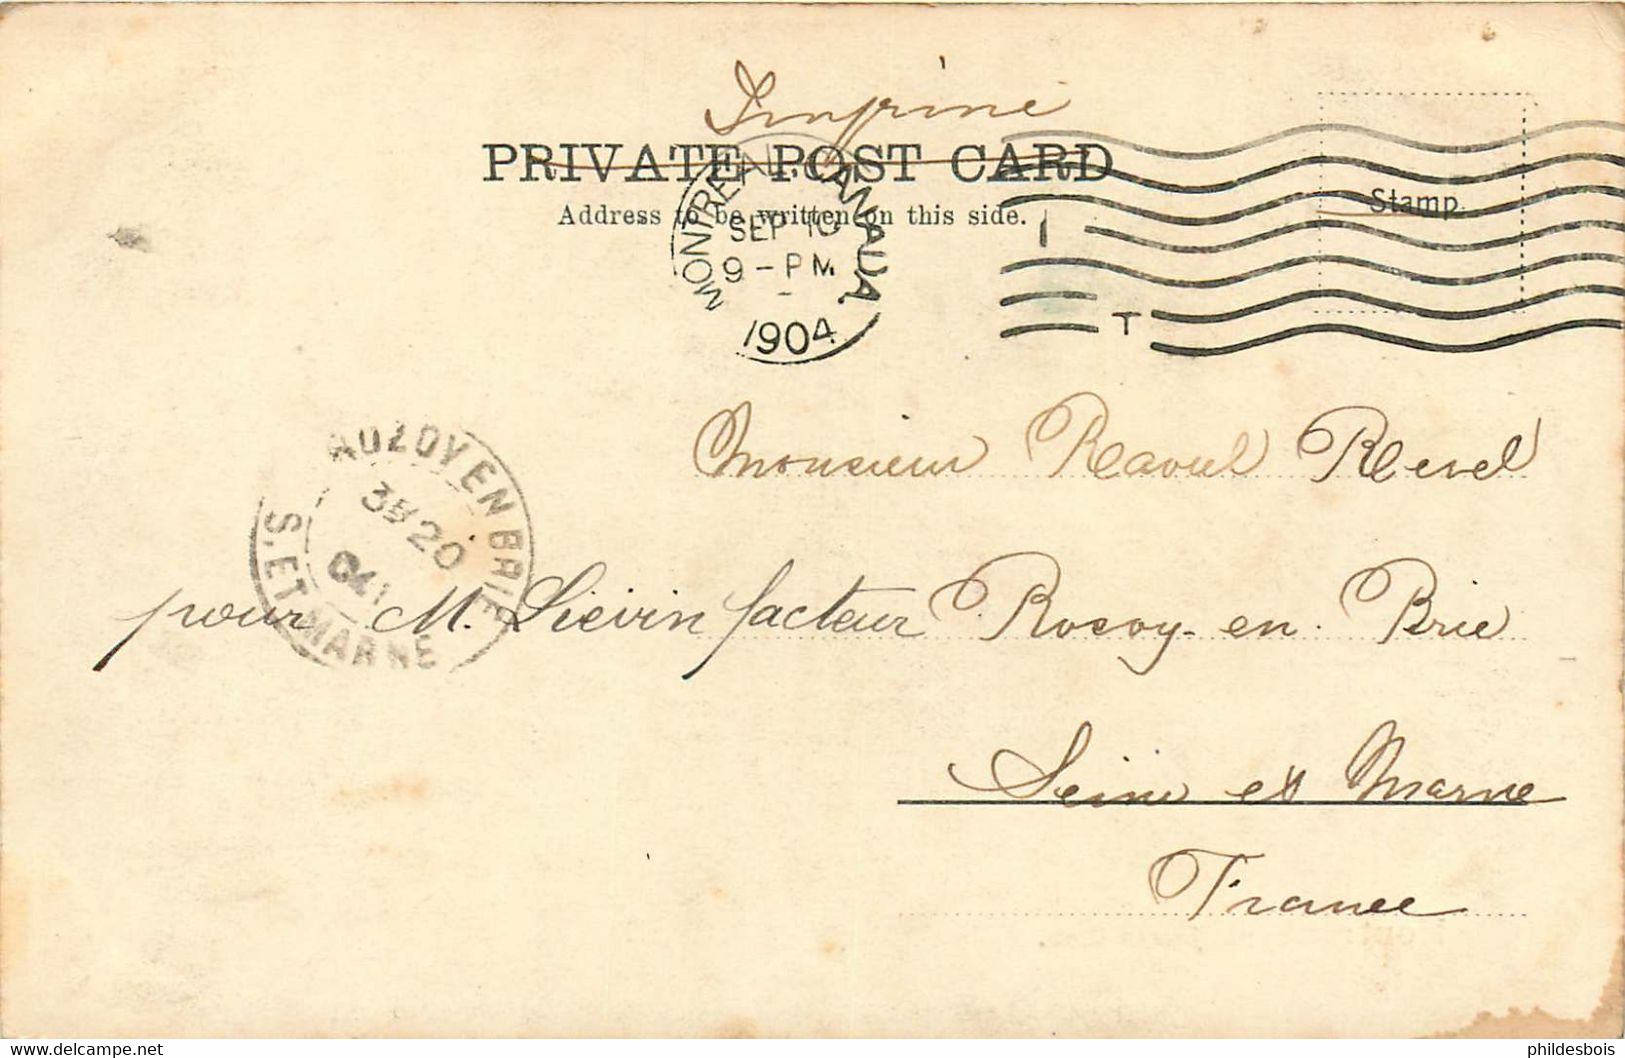 Imprimé
PRIVATE POST CARD
Address to be written on this side.
Stamp
MONTREAL. CANADA.
SEP 10
9 - PM
1904
I
T
Monsieur Raoul Revel
pour M. Lievin facteur Rosoy-en-Brie
Seine et Marne
France
ROZOY EN BRIE
20
04
S. ET MARNE
phildesbois